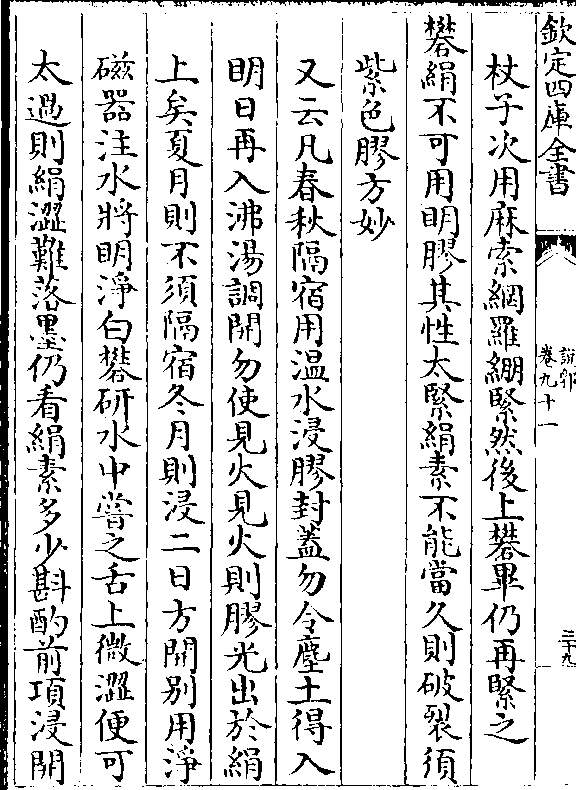 欽定四庫全書
說郛
卷九十一
三十九
杖子次用麻索網羅綳緊然後上礬畢仍再緊之
礬絹不可用明膠其性太緊絹素不能當久則破裂須
紫色膠方妙
又云凡春秋隔宿用溫水浸膠封蓋勿令塵土得入
明日再入沸湯調開勿使見火見火則膠光出於絹
上矣夏月則不須隔宿冬月則浸二日方開别用淨
磁器注水將明淨白礬研水中嘗之舌上微澀便可
太過則絹澀難落墨仍看絹素多少斟酌前項浸開